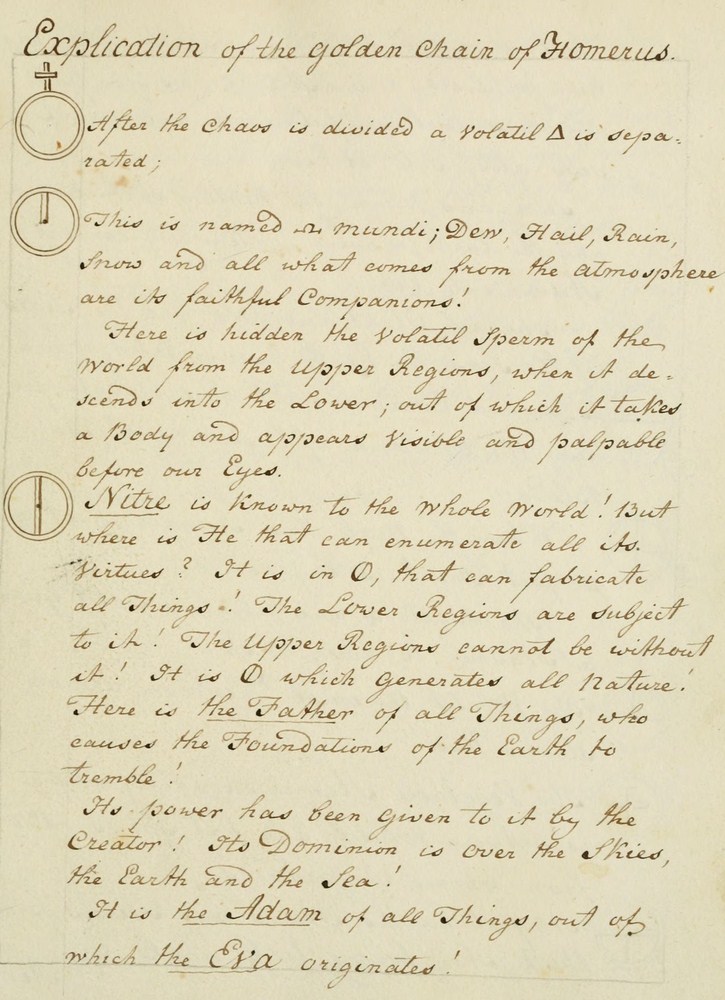 Explication of the golden Chain of Homerus.
After the Chaos is divided a Volatil Δ is sepa-
rated;
This is named ♎ mundi; Dew, Hail, Rain,
Snow and all what comes from the atmosphere
are its faithful Companions!
Here is hidden the Volatil Sperm of the
World from the Upper Regions, when it de-
scends into the Lower; out of which it takes
a Body and appears Visible and palpable
before our Eyes.
Nitre is Known to the Whole World! But
where is He that can enumerate all its
Virtues? It is in 🜕, that can fabricate
all Things! The Lower Regions are subject
to it! The Upper Regions cannot be without
it! It is 🜕 which Generates all Nature!
Here is the Father of all Things, who
causes the Foundations of the Earth to
tremble!
Its power has been given to it by the
Creator! Its Dominion is over the Skies,
the Earth and the Sea!
It is the Adam of all Things, out of
which the Eva originates!